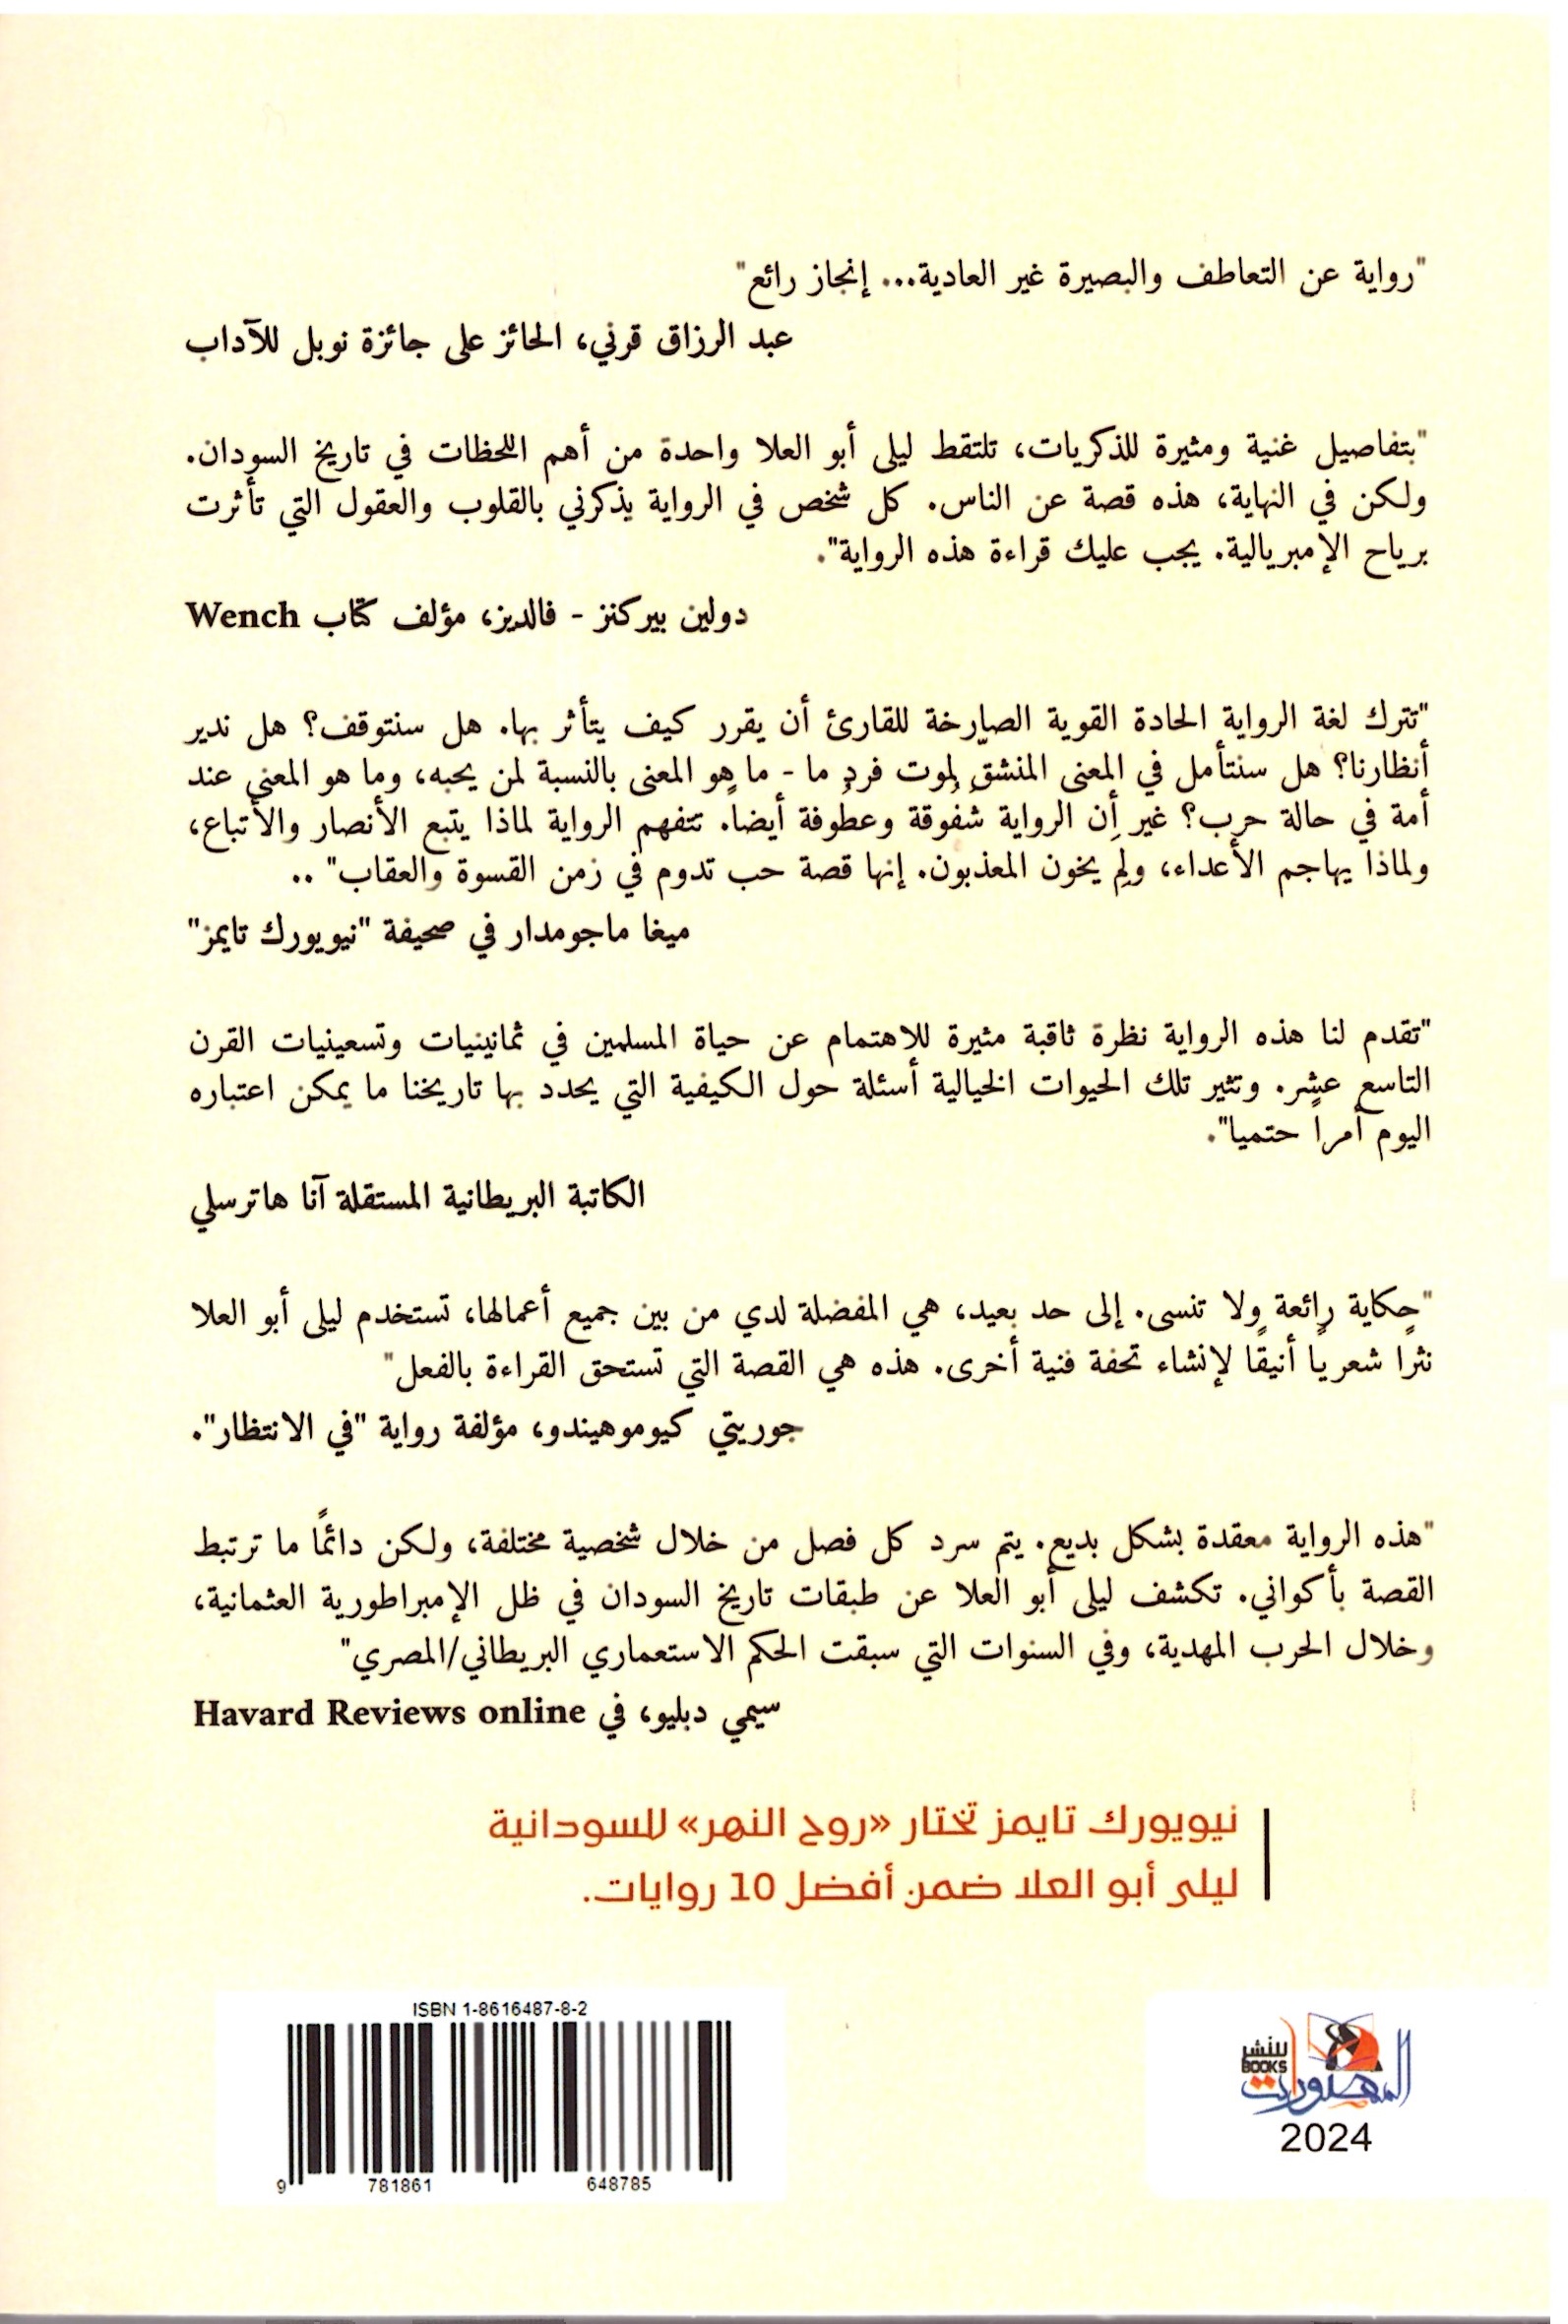 "رواية عن التعاطف والبصيرة غير العادية... إنجاز رائع"
عبد الرزاق قرني، الحائز على جائزة نوبل للآداب
"بتفاصيل غنية ومثيرة للذكريات، تلتقط ليلى أبو العلا واحدة من أهم اللحظات في تاريخ السودان.
ولكن في النهاية، هذه قصة عن الناس. كل شخص في الرواية يذكرني بالقلوب والعقول التي تأثرت
برياح الإمبريالية. يجب عليك قراءة هذه الرواية".
دولين بيركنز - فالديز، مؤلف كتاب Wench
"تترك لغة الرواية الحادة القوية الصارخة للقارئ أن يقرر كيف يتأثر بها. هل سنتوقف؟ هل ندير
أنظارنا؟ هل سنتأمل في المعنى المنشقّ لموت فردٍ ما - ما هو المعنى بالنسبة لمن يحبه، وما هو المعنى عند
أمة في حالة حرب؟ غير أن الرواية شفُوقة وعطُوفة أيضاً. تتفهم الرواية لماذا يتبع الأنصار والأتباع،
ولماذا يهاجم الأعداء، ولِم يخون المعذبون. إنها قصة حب تدوم في زمن القسوة والعقاب" ..
ميغا ماجومدار في صحيفة "نيويورك تايمز"
"تقدم لنا هذه الرواية نظرة ثاقبة مثيرة للاهتمام عن حياة المسلمين في ثمانينيات وتسعينيات القرن
التاسع عشر. وتثير تلك الحيوات الخيالية أسئلة حول الكيفية التي يحدد بها تاريخنا ما يمكن اعتباره
اليوم أمراً حتميا".
الكاتبة البريطانية المستقلة آنا هاترسلي
"حكاية رائعة ولا تنسى. إلى حد بعيد، هي المفضلة لدي من بين جميع أعمالها، تستخدم ليلى أبو العلا
نثرًا شعريًا أنيقًا لإنشاء تحفة فنية أخرى. هذه هي القصة التي تستحق القراءة بالفعل"
جوريتي كيوموهيندو، مؤلفة رواية "في الانتظار".
"هذه الرواية معقدة بشكل بديع. يتم سرد كل فصل من خلال شخصية مختلفة، ولكن دائمًا ما ترتبط
القصة بأكواني. تكشف ليلى أبو العلا عن طبقات تاريخ السودان في ظل الإمبراطورية العثمانية،
وخلال الحرب المهدية، وفي السنوات التي سبقت الحكم الاستعماري البريطاني/المصري"
سيمي دبليو، في Havard Reviews online
نيويورك تايمز تختار «روح النهر» للسودانية
ليلى أبو العلا ضمن أفضل 10 روايات.
ISBN 1-8616487-8-2
9 781861 648785
للنشر
BOOKS
المصورات
2024